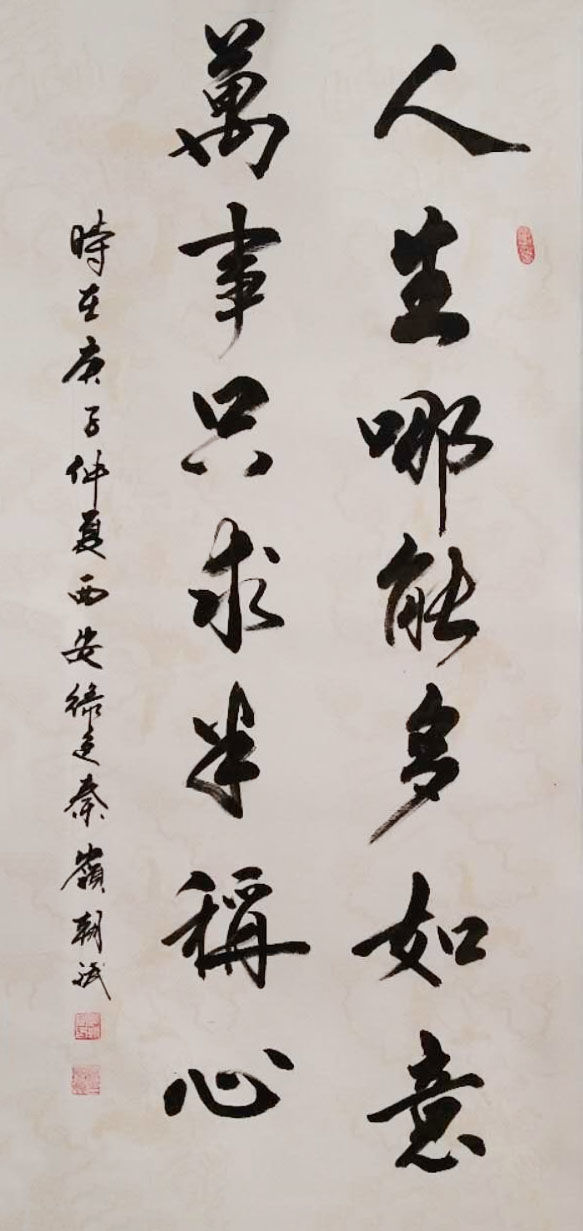 人生哪能多如意
萬事只求半稱心
時在庚子仲夏西安綠遠秦嶺朝斌